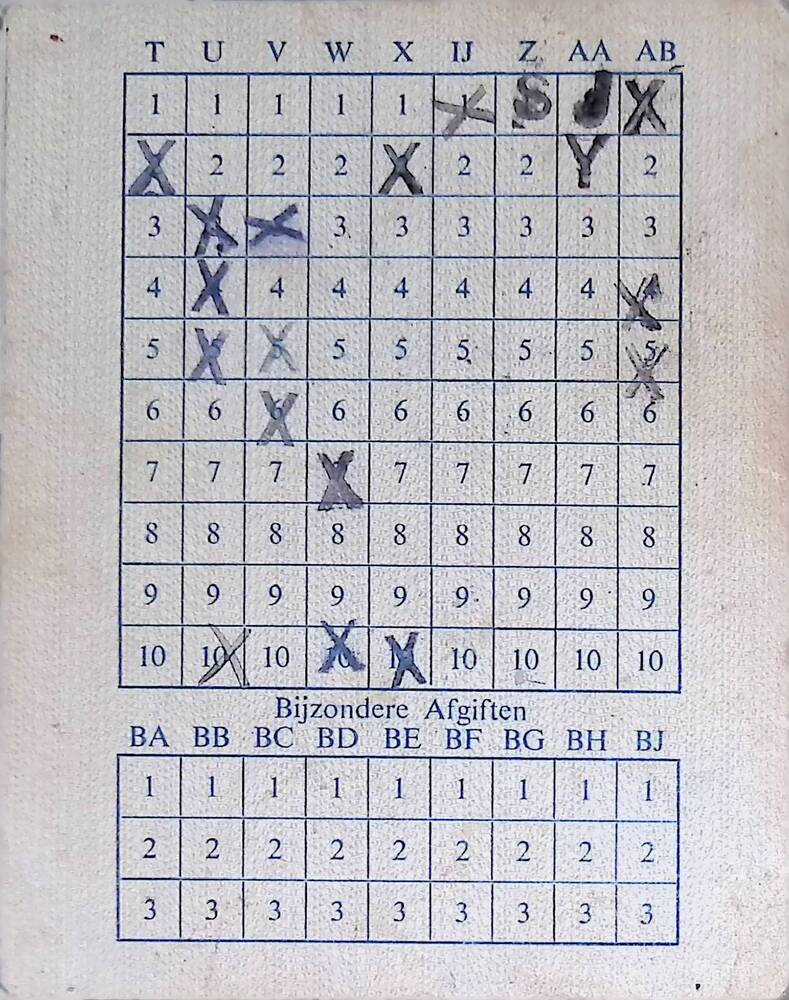 T U V W X IJ Z AA AB
1 1 1 1 1 X S J X
X 2 2 2 X 2 2 Y 2
3 X X 3 3 3 3 3 3
4 X 4 4 4 4 4 4 X
5 X X 5 5 5 5 5 5 X
6 6 X 6 6 6 6 6 6
7 7 7 X 7 7 7 7 7
8 8 8 8 8 8 8 8 8
9 9 9 9 9 9 9 9 9
10 10 X 10 X X 10 10 10 10
Bijzondere Afgiften
BA BB BC BD BE BF BG BH BJ
1 1 1 1 1 1 1 1 1
2 2 2 2 2 2 2 2 2
3 3 3 3 3 3 3 3 3